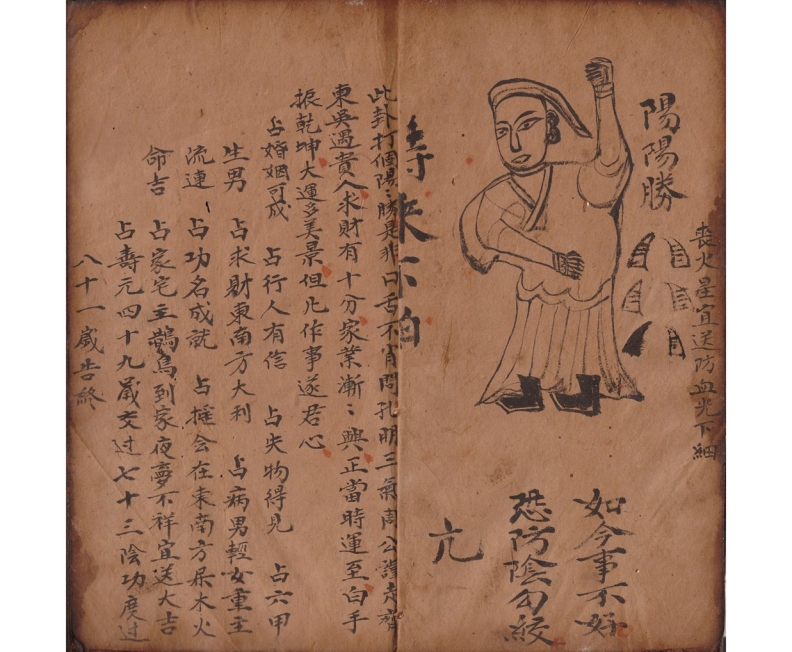 陽陽勝
喪火星宜送防血光下細
如今事不好
恐防陰勾絞
亢
來不怕
此卦打個陽〻勝是非口舌不肖問孔明三氣周公謹走齊
東吳遇貴人求財有十分家業漸〻興正當時運至白手
振乾坤大運多美景但凡作事遂君心
占婚姻可成 占行人有信 占失物得見 占六甲
生男 占求財東南方大利 占病男輕女重主
流連 占功名成就 占搖會在東南方屬木火
命吉 占家宅主鵲鳥到家夜夢不祥宜送大吉
占壽元四十九歲交过七十三陰功度过
八十一歲告終